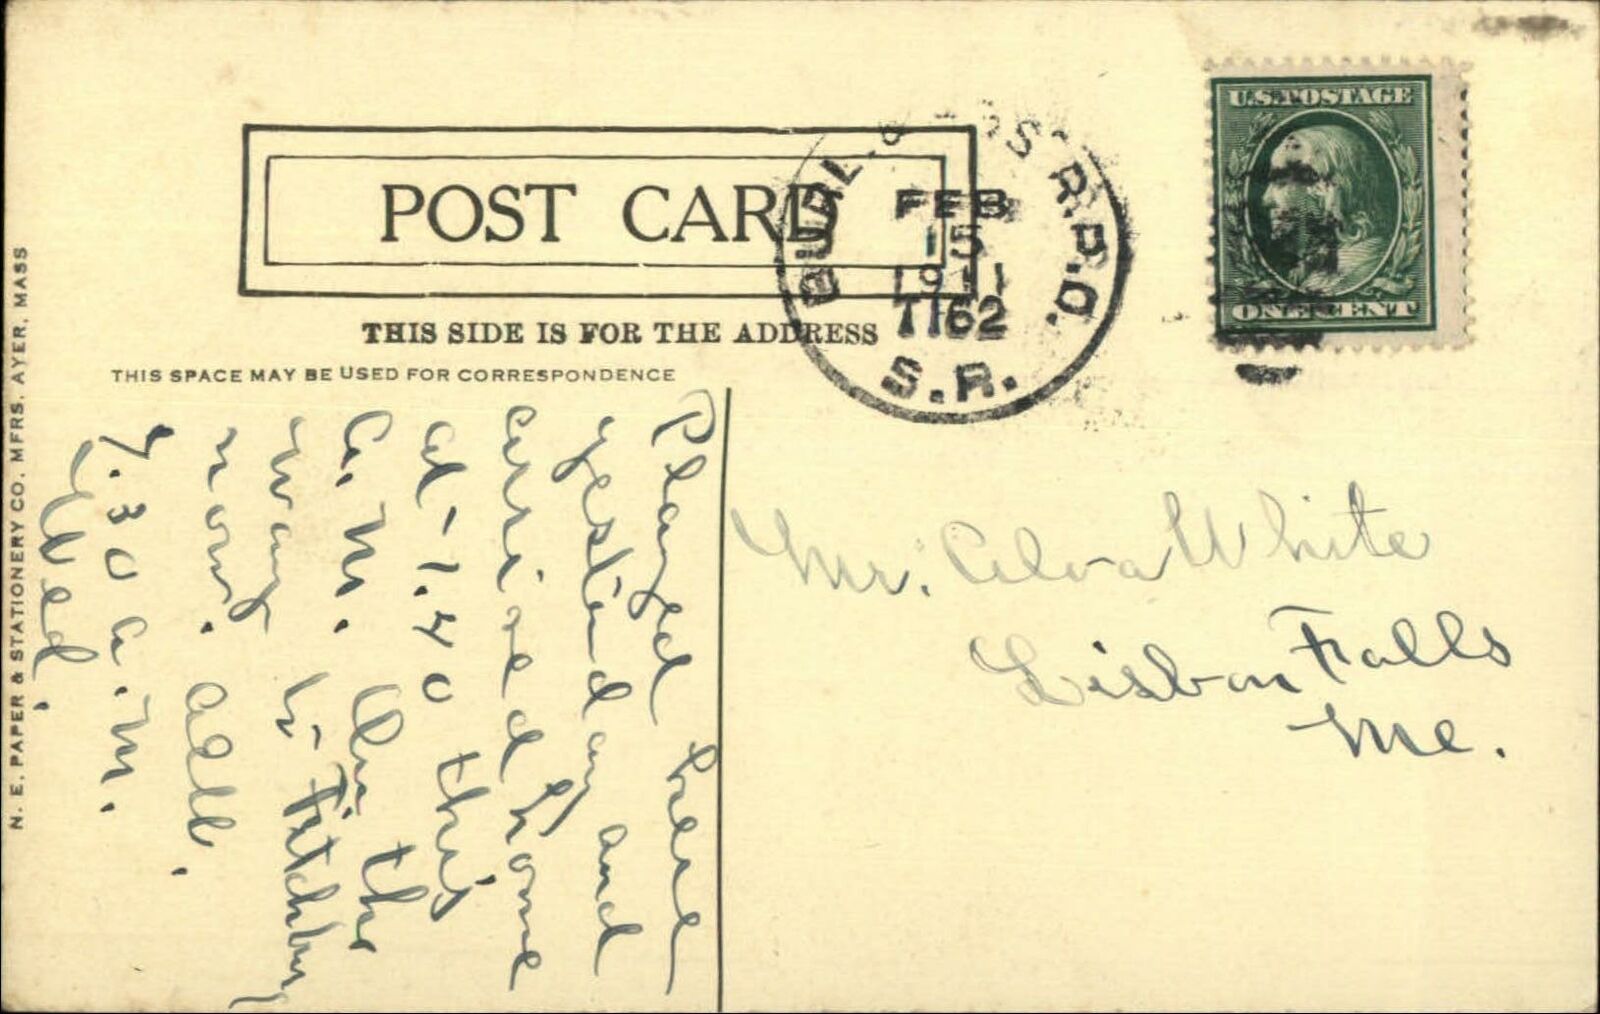 POST CARD
THIS SIDE IS FOR THE ADDRESS
THIS SPACE MAY BE USED FOR CORRESPONDENCE
N. E. PAPER & STATIONERY CO. MFRS. AYER, MASS
U.S. POSTAGE
ONE CENT
BURL. & R.P.O.
FEB
15
1911
T162
S.R.
Played here
yesterday and
arrived home
at 1.40 this
A.M. On the
way to Fitchburg
now. Alb.
7.30 A.M.
Wed.
Mr. Alva White
Lisbon Falls
Me.